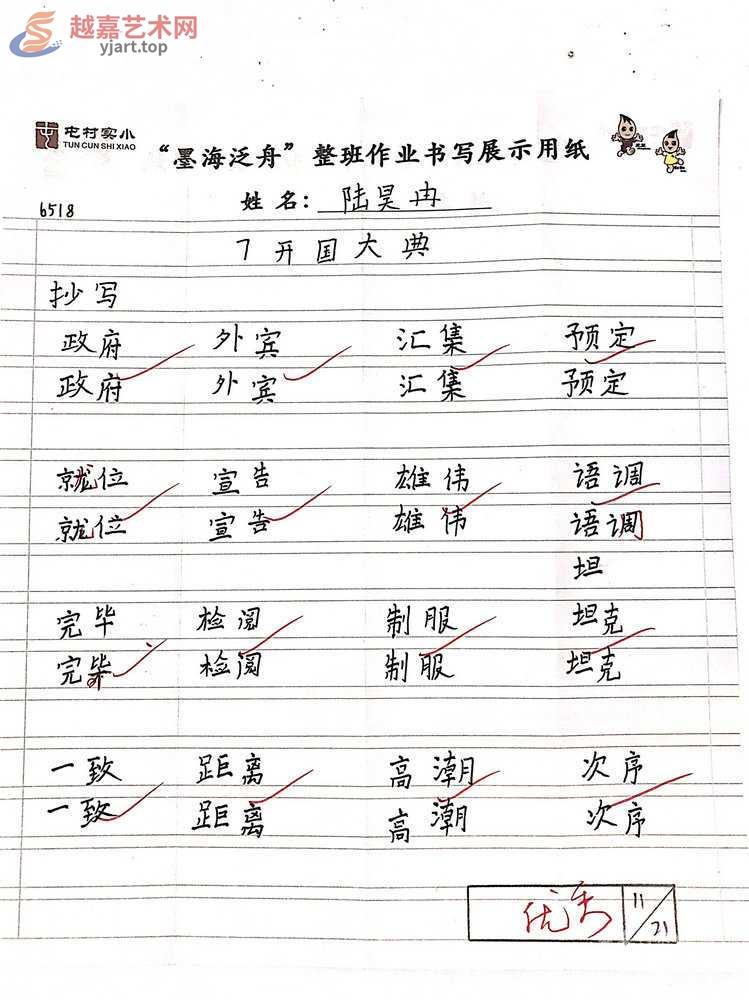 越嘉艺术网
yjart.top
屯村实小
TUN CUN SHI XIAO
“墨海泛舟”整班作业书写展示用纸
姓名：陆昊冉
6518
7 开国大典
抄写
政府 外宾 汇集 预定
政府 外宾 汇集 预定
就位 宣告 雄伟 语调
就位 宣告 雄伟 语调
坦
完毕 检阅 制服 坦克
完毕 检阅 制服 坦克
一致 距离 高潮 次序
一致 距离 高潮 次序
优秀 11/21